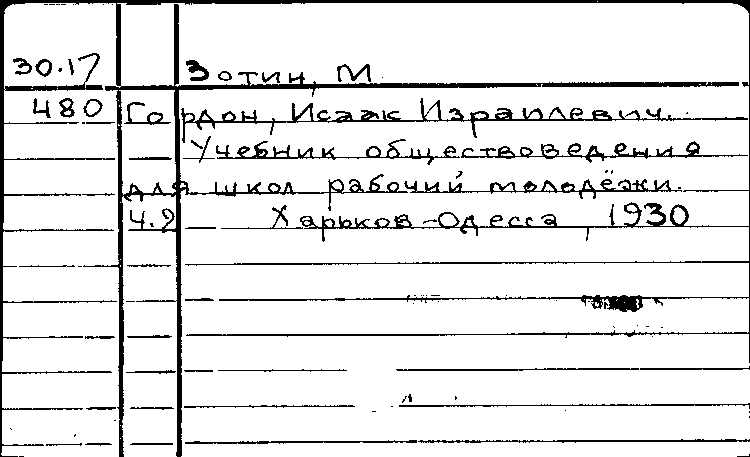 30.17 Зотин, М
480 Гордон, Исаак Израилевич.
Учебник обществоведения
для школ рабочий молодёжи.
Ч.2 Харьков-Одесса, 1930